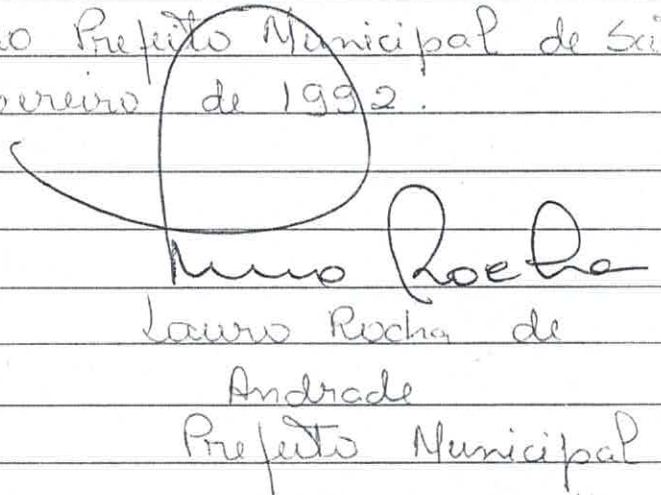 Prefeito Municipal de
de 1992.
Rocha
Lauro Rocha de
Andrade
Prefeito Municipal